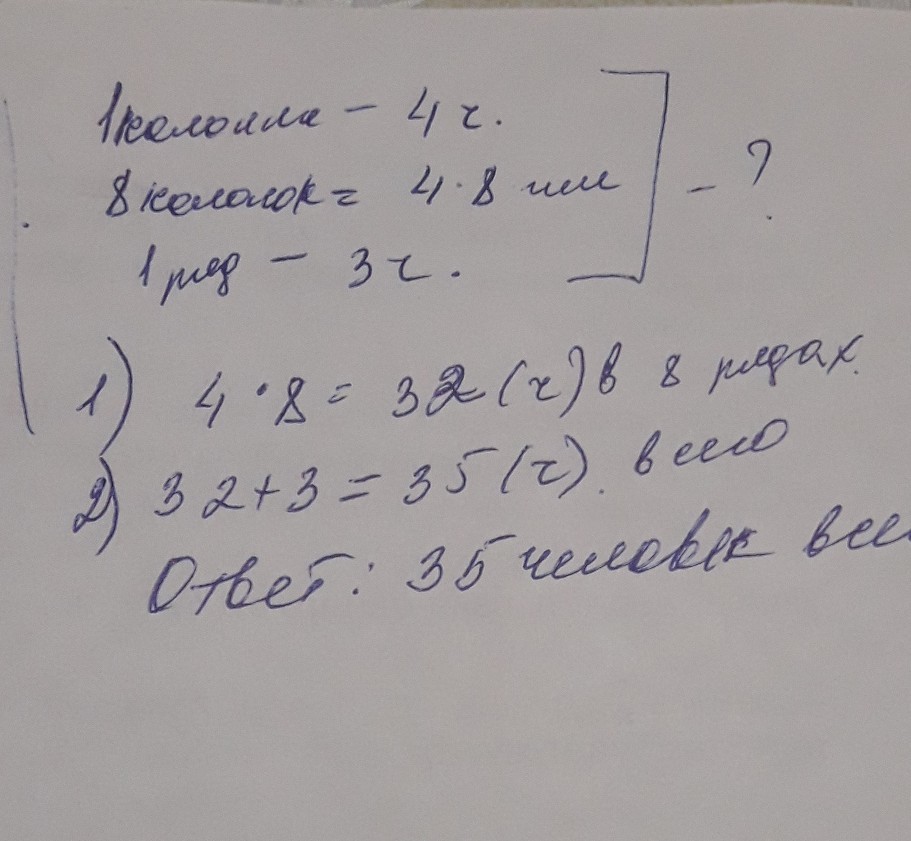 1 колонна - 4 ч.
8 колонок = 4 · 8 чел
1 ряд - 3 ч.
- ?
1) 4 · 8 = 32 (ч) в 8 рядах.
2) 32 + 3 = 35 (ч). всего
Ответ: 35 человек все